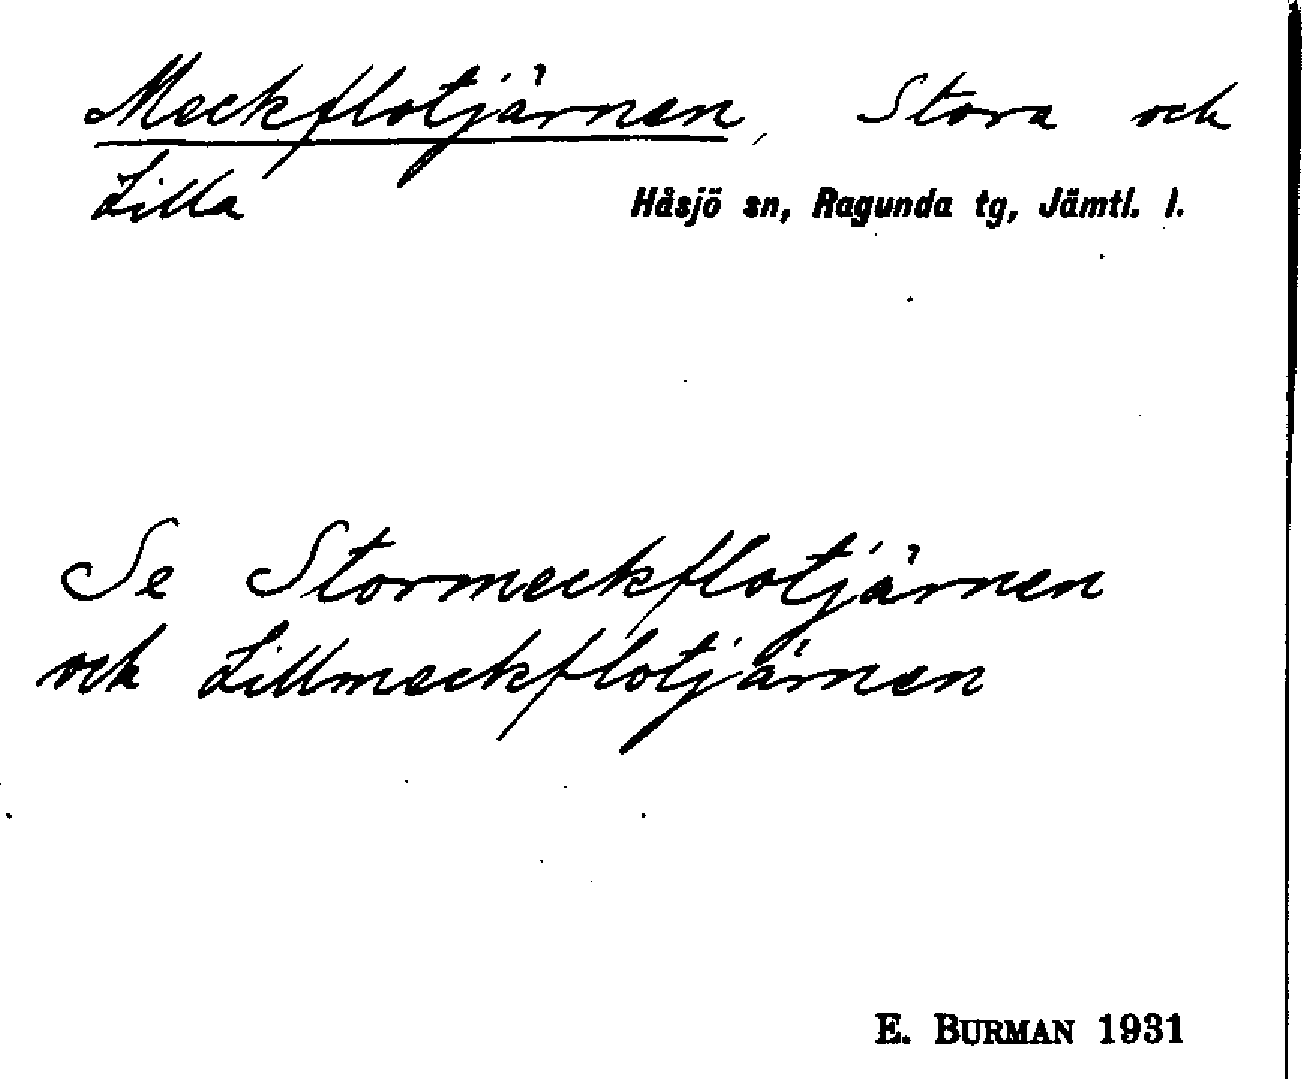 Meckflotjärnen, Stora och
Lilla
Håsjö sn, Ragunda tg, Jämtl. l.
Se Stormeckflotjärnen
och Lillmeckflotjärnen
E. BURMAN 1931